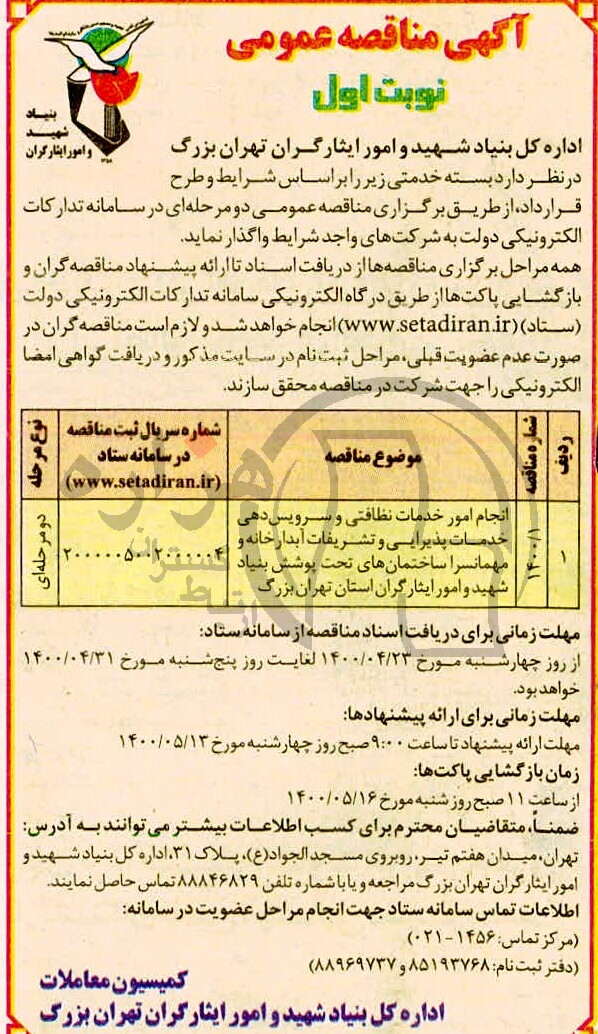 آگهی مناقصه عمومی
نوبت اول
بنیاد
شهید
و امور ایثارگران
اداره کل بنیاد شهید و امور ایثارگران تهران بزرگ
در نظر دارد بسته خدمتی زیر را بر اساس شرایط و طرح
قرارداد، از طریق برگزاری مناقصه عمومی دو مرحله‌ای در سامانه تدارکات
الکترونیکی دولت به شرکت‌های واجد شرایط واگذار نماید.
همه مراحل برگزاری مناقصه‌ها از دریافت اسناد تا ارائه پیشنهاد مناقصه‌گران و
بازگشایی پاکت‌ها از طریق درگاه الکترونیکی سامانه تدارکات الکترونیکی دولت
(ستاد) (www.setadiran.ir) انجام خواهد شد و لازم است مناقصه‌گران در
صورت عدم عضویت قبلی، مراحل ثبت نام در سایت مذکور و دریافت گواهی امضا
الکترونیکی را جهت شرکت در مناقصه محقق سازند.
ردیف
شماره مناقصه
موضوع مناقصه
شماره سریال ثبت مناقصه
در سامانه ستاد
(www.setadiran.ir)
نوع مرحله
۱
۱۴۰۰/۱
انجام امور خدمات نظافتی و سرویس‌دهی
خدمات پذیرایی و تشریفات آبدارخانه و
مهمانسرا ساختمان‌های تحت پوشش بنیاد
شهید و امور ایثارگران استان تهران بزرگ
۲۰۰۰۰۰۵۰۰۲۰۰۰۰۰۴
دو مرحله‌ای
مهلت زمانی برای دریافت اسناد مناقصه از سامانه ستاد:
از روز چهارشنبه مورخ ۱۴۰۰/۰۴/۲۳ لغایت روز پنج‌شنبه مورخ ۱۴۰۰/۰۴/۳۱
خواهد بود.
مهلت زمانی برای ارائه پیشنهادها:
مهلت ارائه پیشنهاد تا ساعت ۹:۰۰ صبح روز چهارشنبه مورخ ۱۴۰۰/۰۵/۱۳
زمان بازگشایی پاکت‌ها:
از ساعت ۱۱ صبح روز شنبه مورخ ۱۴۰۰/۰۵/۱۶
ضمناً، متقاضیان محترم برای کسب اطلاعات بیشتر می‌توانند به آدرس:
تهران، میدان هفتم تیر، روبروی مسجد الجواد(ع)، پلاک ۳۱، اداره کل بنیاد شهید و
امور ایثارگران تهران بزرگ مراجعه و یا با شماره تلفن ۸۸۸۴۶۸۲۹ تماس حاصل نمایند.
اطلاعات تماس سامانه ستاد جهت انجام مراحل عضویت در سامانه:
(مرکز تماس: ۱۴۵۶-۰۲۱)
(دفتر ثبت نام: ۸۵۱۹۳۷۶۸ و ۸۸۹۶۹۷۳۷)
کمیسیون معاملات
اداره کل بنیاد شهید و امور ایثارگران تهران بزرگ